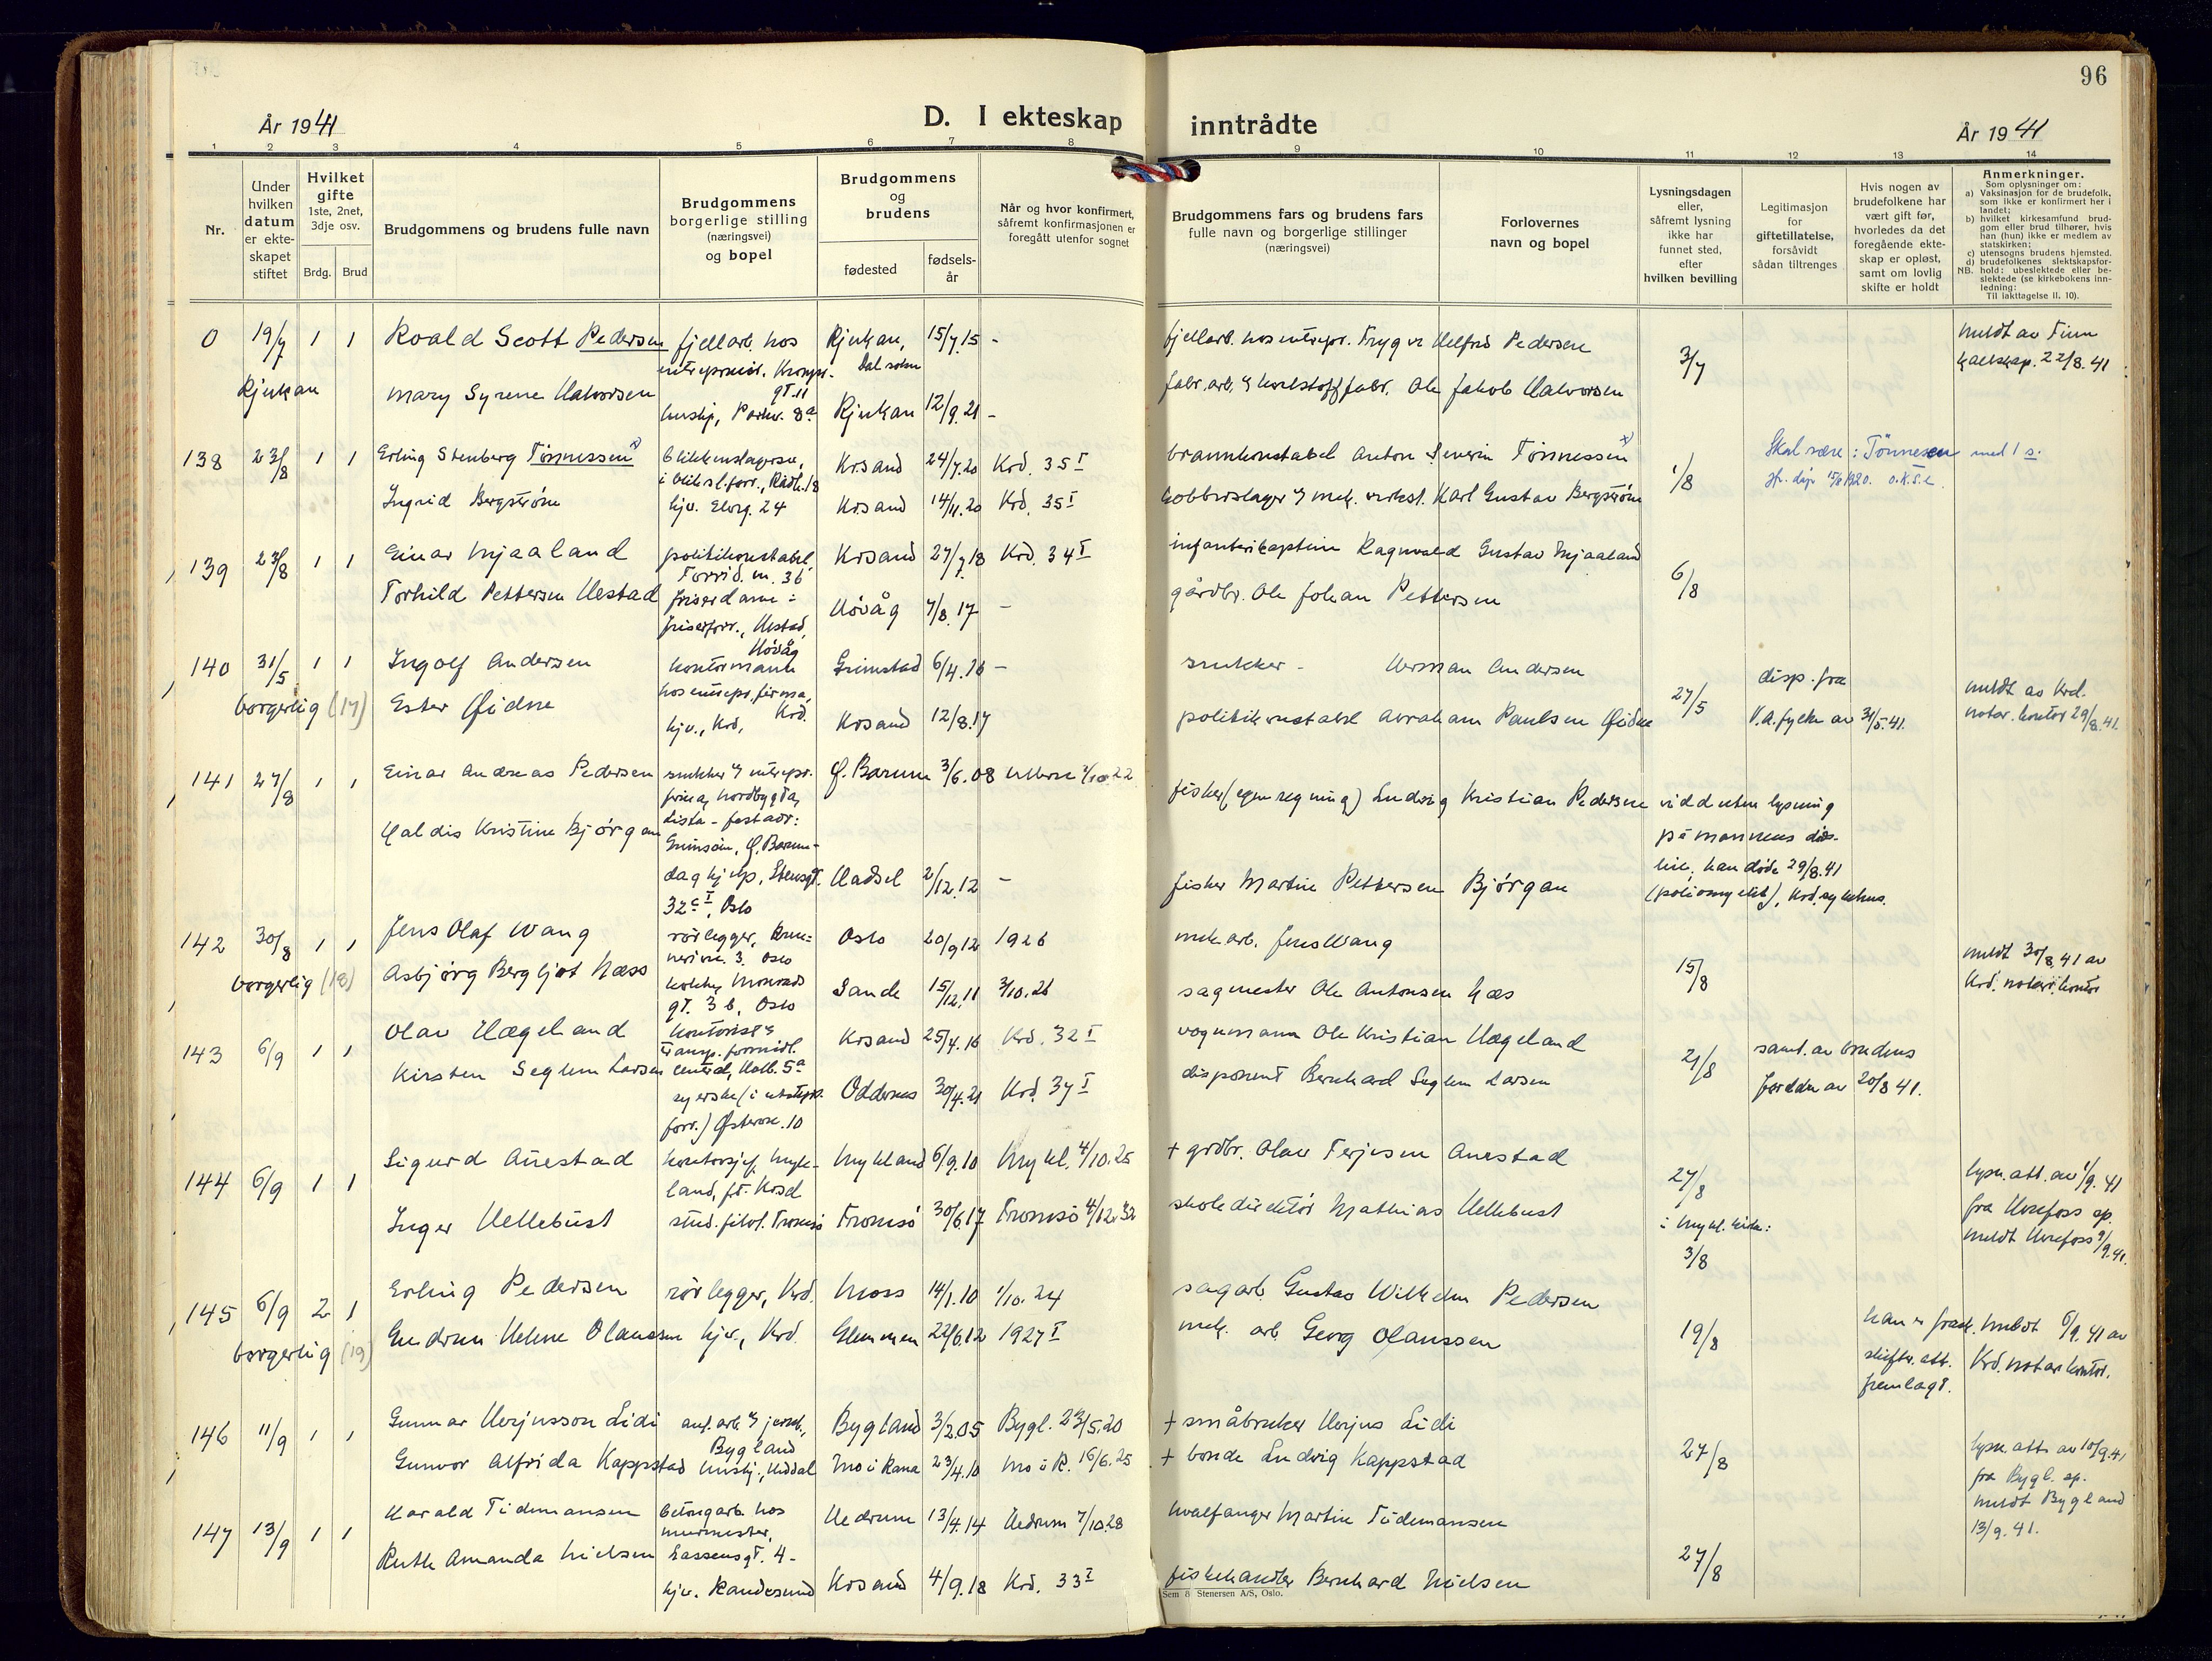 96
År 1941
D. I ekteskap inntrådte
År 1941
1 2 3 3 4 5 6 7 8 9 10 11 12 13 14
Nr.
Under hvilken datum er ekteskapet stiftet
Hvilket gifte
1ste, 2net, 3dje osv.
Brdg. Brud
Brudgommens og brudens fulle navn
Brudgommens borgerlige stilling (næringsvei) og bopel
Brudgommens og brudens
fødested
fødselsår
Når og hvor konfirmert, såfremt konfirmasjonen er foregått utenfor sognet
Brudgommens fars og brudens fars fulle navn og borgerlige stillinger (næringsvei)
Forlovernes navn og bopel
Lysningsdagen eller, såfremt lysning ikke har funnet sted, efter hvilken bevilling
Legitimasjon for giftetillatelse, forsåvidt sådan tiltrenges
Hvis nogen av brudefolkene har vært gift før, hvorledes da det foregående ekteskap er opløst, samt om lovlig skifte er holdt
Anmerkninger.
Som oplysninger om:
a) Vaksinasjon for de brudefolk, som ikke er konfirmert her i landet;
b) hvilket kirkesamfund brudgom eller brud tilhører, hvis han (hun) ikke er medlem av statskirken;
c) utensogns brudens hjemsted.
d) brudefolkenes slektskapsforhold: ubeslektede eller beslektede (se kirkebokens innledning:
NB.
Til iakttagelse II, 10).
0 19/7 1 1 Roald Scott Pedersen fjellarb. hos Rjukan, Dal sokn 15/7.15 - fjellarb. hos entrepr. Trygve Helfred Pedersen 3/7 meldt av Tinn
22/8.41
Rjukan Mary Syrene Halvorsen hushj., Parkv. 8a Rjukan 12/9.21 - fabr. arb. Ole Jakob Halvorsen
138 23/8 1 1 Erling Stenberg Tönnessen x) blikkenslagersv., Krsand 24/7.20 Krd. 35 I brannkonstabel Anton Severin Tönnessen x) 1/8 Skal være: Tönnesen med 1 s.
Ingrid Bergström hjv. Elvg. 24 Krsand 14/11.20 Krd. 35 I kobberslager Karl Gustav Bergström
139 23/8 1 1 Einar Mjaaland politikonstabel, Krsand 27/7.18 Krd. 34 I infanterikaptein Ragnvald Gustav Mjaaland 6/8
Torhild Pettersen Hestad friserdame i friserforr., Hestad, Hövåg Hövåg 7/8.17 - gårdbr. Ole Johan Pettersen
140 31/5 1 1 Ingolf Andersen kontormann Grimstad 6/4.16 - snekker - Herman Andersen 27/5 disp. fra V.A. fylke av 31/5.41. meldt av Krd. notar. kontor 29/8.41.
borgerlig (17) Ester Øidne hjv., Krd. Krsand 12/8.17 politikonstabel Abraham Paulsen Øidne
141 27/8 1 1 Einar Andreas Pedersen snekker Ø. Barum 3/6.08 Ullern 1/10.22 fisker (egen regning) Ludvig Kristian Pedersen vidd uten lysning
på mannens döds-
leie, han döde 29/8.41
(poliomyelit), Krd. sykehus.
Haldis Kristine Björgan daghjelp, Stensgt. 32c I, Oslo Hadsel 2/12.12 - fisker Martin Pettersen Björgan
142 30/8 1 1 Jens Olaf Wang rörlegger, Oslo 20/9.12 1926 mek arb. Jens Wang 15/8 meldt 30/8.41 av
Krd. notar. kontor
borgerlig (18) Asbjörg Bergljot Næss gt. 3 b, Oslo Sande 15/12.11 3/10.26 sagmester Ole Antonsen Næs
143 6/9 1 1 Olav Hægeland kontorist Krsand 25/4.16 Krd. 32 I vognmann Ole Kristian Hægeland 21/8 samt. av brudens
foreldre av 20/8 41.
Kirsten Seglem Larsen syerske Østervn. 10 Oddernes 30/4.21 Krd. 37 I disponent Bernhard Seglem Larsen
144 6/9 1 1 Sigurd Aurestad kontorsjef, Mykland, Mykland 6/9.10 Mykl. 4/10.25 + grdbr. Olav Terjesen Aurestad 27/8 lysn. att. av 1/9.41
fra Herefoss sp.
meldt Herefoss 9/9.41.
Inger Hellebust stud. filol. Tromsö Tromsö 30/6.17 Tromsö 4/12.32 skoledirektör Mathias Hellebust
i Mykl. kirke:
3/8
145 6/9 2 1 Erling Pedersen rörlegger, Krd. Moss 14/1.10 1/10.24 sagarb. Gustav Wilhelm Pedersen 19/8 han er frask. meldt 6/9.41 av
skiftr. att. Krd. notar kontor.
fremlagt.
borgerlig (19) Gudrun Helene Olaussen hjv., Krd. Glemmen 22/6.12 1927 I mek. arb. Georg Olaussen
146 11/9 1 1 Gunnar Herjusson Lidi anl. arb. Bygland Bygland 3/2.05 Bygl. 23/5.20 + småbruker Herjus Lidi 27/8 lysn. att. av 10/9.41
fra Bygl. sp.
meldt Bygland
13/9.41.
Gunvor Alfrida Kappstad hushj., Mo i Rana 23/4.10 Mo i R. 16/6.25 + bonde Ludvig Kappstad
147 13/9 1 1 Harald Tidemansen betongarb. hos murmester, Hedrum 13/4.14 Hedrum 7/10.28 hvalfanger Martin Tidemansen 27/8
Ruth Amanda Nielsen hjv. Randesund Krsand 4/9.18 Krd. 33 I fiskehandler Bernhard Nielsen
Sem 8 Stenersen A/S, Oslo.